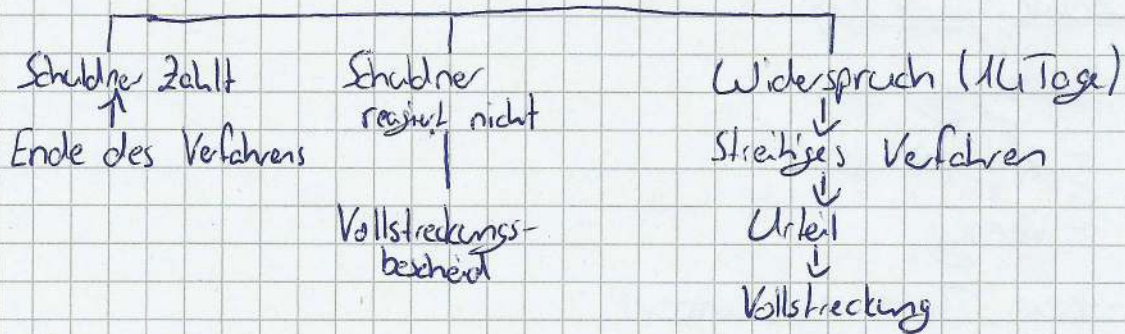 Schuldner zahlt
Ende des Verfahrens
Schuldner
reagiert nicht
Vollstreckungs-
bescheid
Widerspruch (14 Tage)
Streitiges Verfahren
Urteil
Vollstreckung